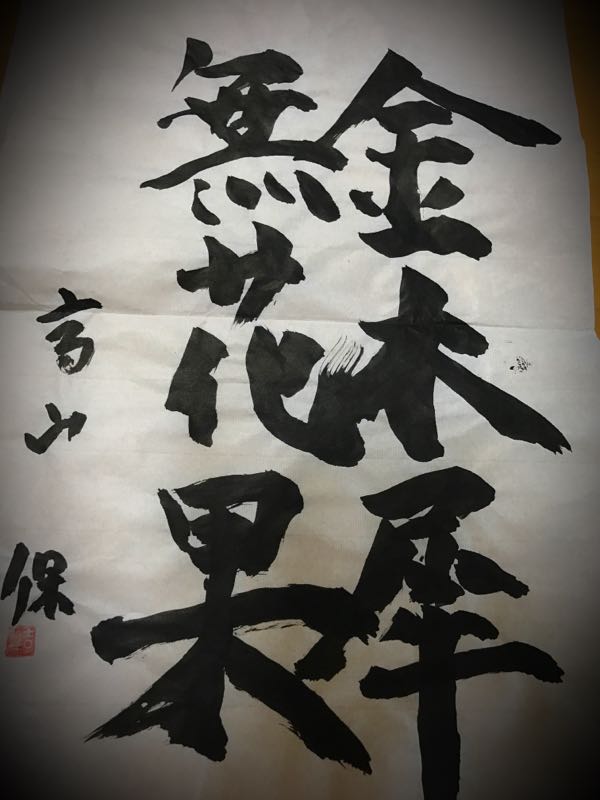 金木犀
無花果
高山 保